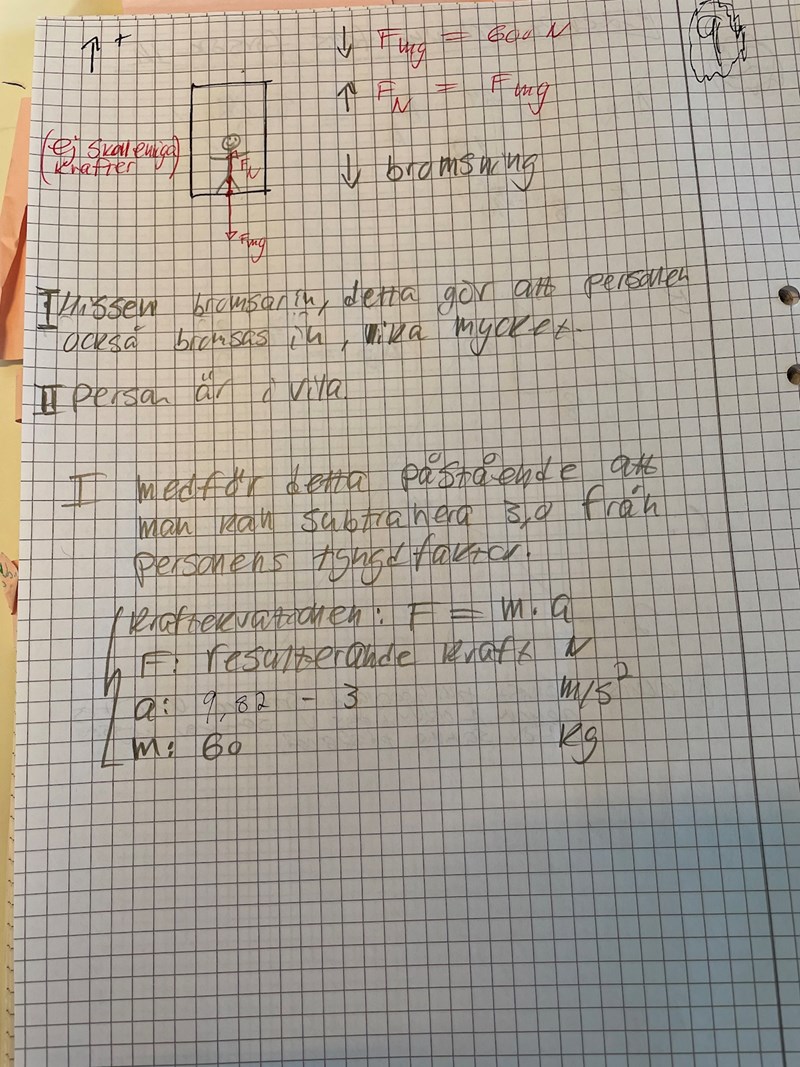 ↑ +
↓ Fmg = 600 N
9
↑ FN = Fmg
(ej skalenliga
krafter)
FN
↓ bromsning
Fmg
I Hissen bromsar in, detta gör att personen
också bromsas in, lika mycket.
II Person är i vila
I medför detta påstående att
man kan subtrahera 3,0 från
personens tyngdfaktor.
kraftekvationen: F = m · a
F: resulterande kraft N
a: 9,82 - 3 m/s²
m: 60 kg